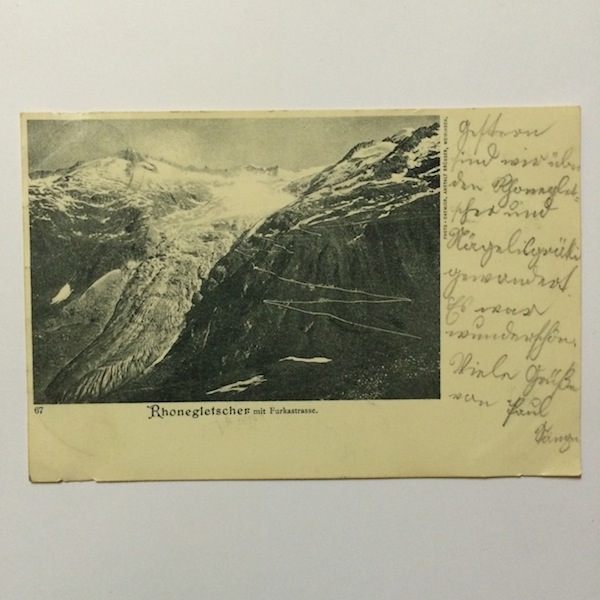 67
Rhonegletscher mit Furkastrasse.
Gestern
sind wir über
den Rhoneglet-
scher und
Nägelisgrätli
gewandert.
Es war
wunderschön.
Viele Grüße
von Paul